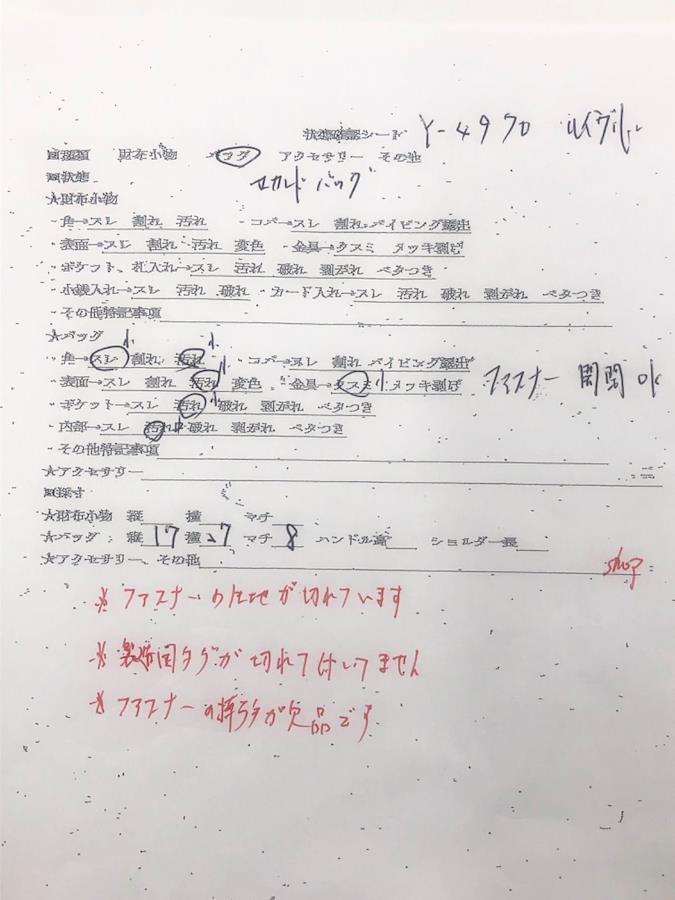 状態確認シート Y-4970 ルイヴィ
■種類 財布小物 バッグ アクセサリー その他
■状態 セカンドバッグ
★財布小物
・角→スレ 割れ 汚れ ・コバ→スレ 割れ パイピング露出
・表面→スレ 割れ 汚れ 変色 ・金具→クスミ メッキ剥げ
・ポケット、札入れ→スレ 汚れ 破れ 剥がれ ベタつき
・小銭入れ→スレ 汚れ 破れ ・カード入れ→スレ 汚れ 破れ 剥がれ ベタつき
・その他特記事項
★バッグ
・角→スレ 割れ 汚れ ・コバ→スレ 割れ パイピング露出
・表面→スレ 割れ 汚れ 変色 ・金具→クスミ メッキ剥げ ファスナー 開閉 ok
・ポケット→スレ 汚れ 破れ 剥がれ ベタつき
・内部→スレ 汚れ 破れ 剥がれ ベタつき
・その他特記事項
★アクセサリー
■採寸
★財布小物 縦 横 マチ
★バッグ 縦 17 横 27 マチ 8 ハンドル高 ショルダー長
★アクセサリー、その他
shop
※ ファスナーの生地が切れています
※ 製造国タグが切れて付いてません
※ ファスナーの持手が欠品です